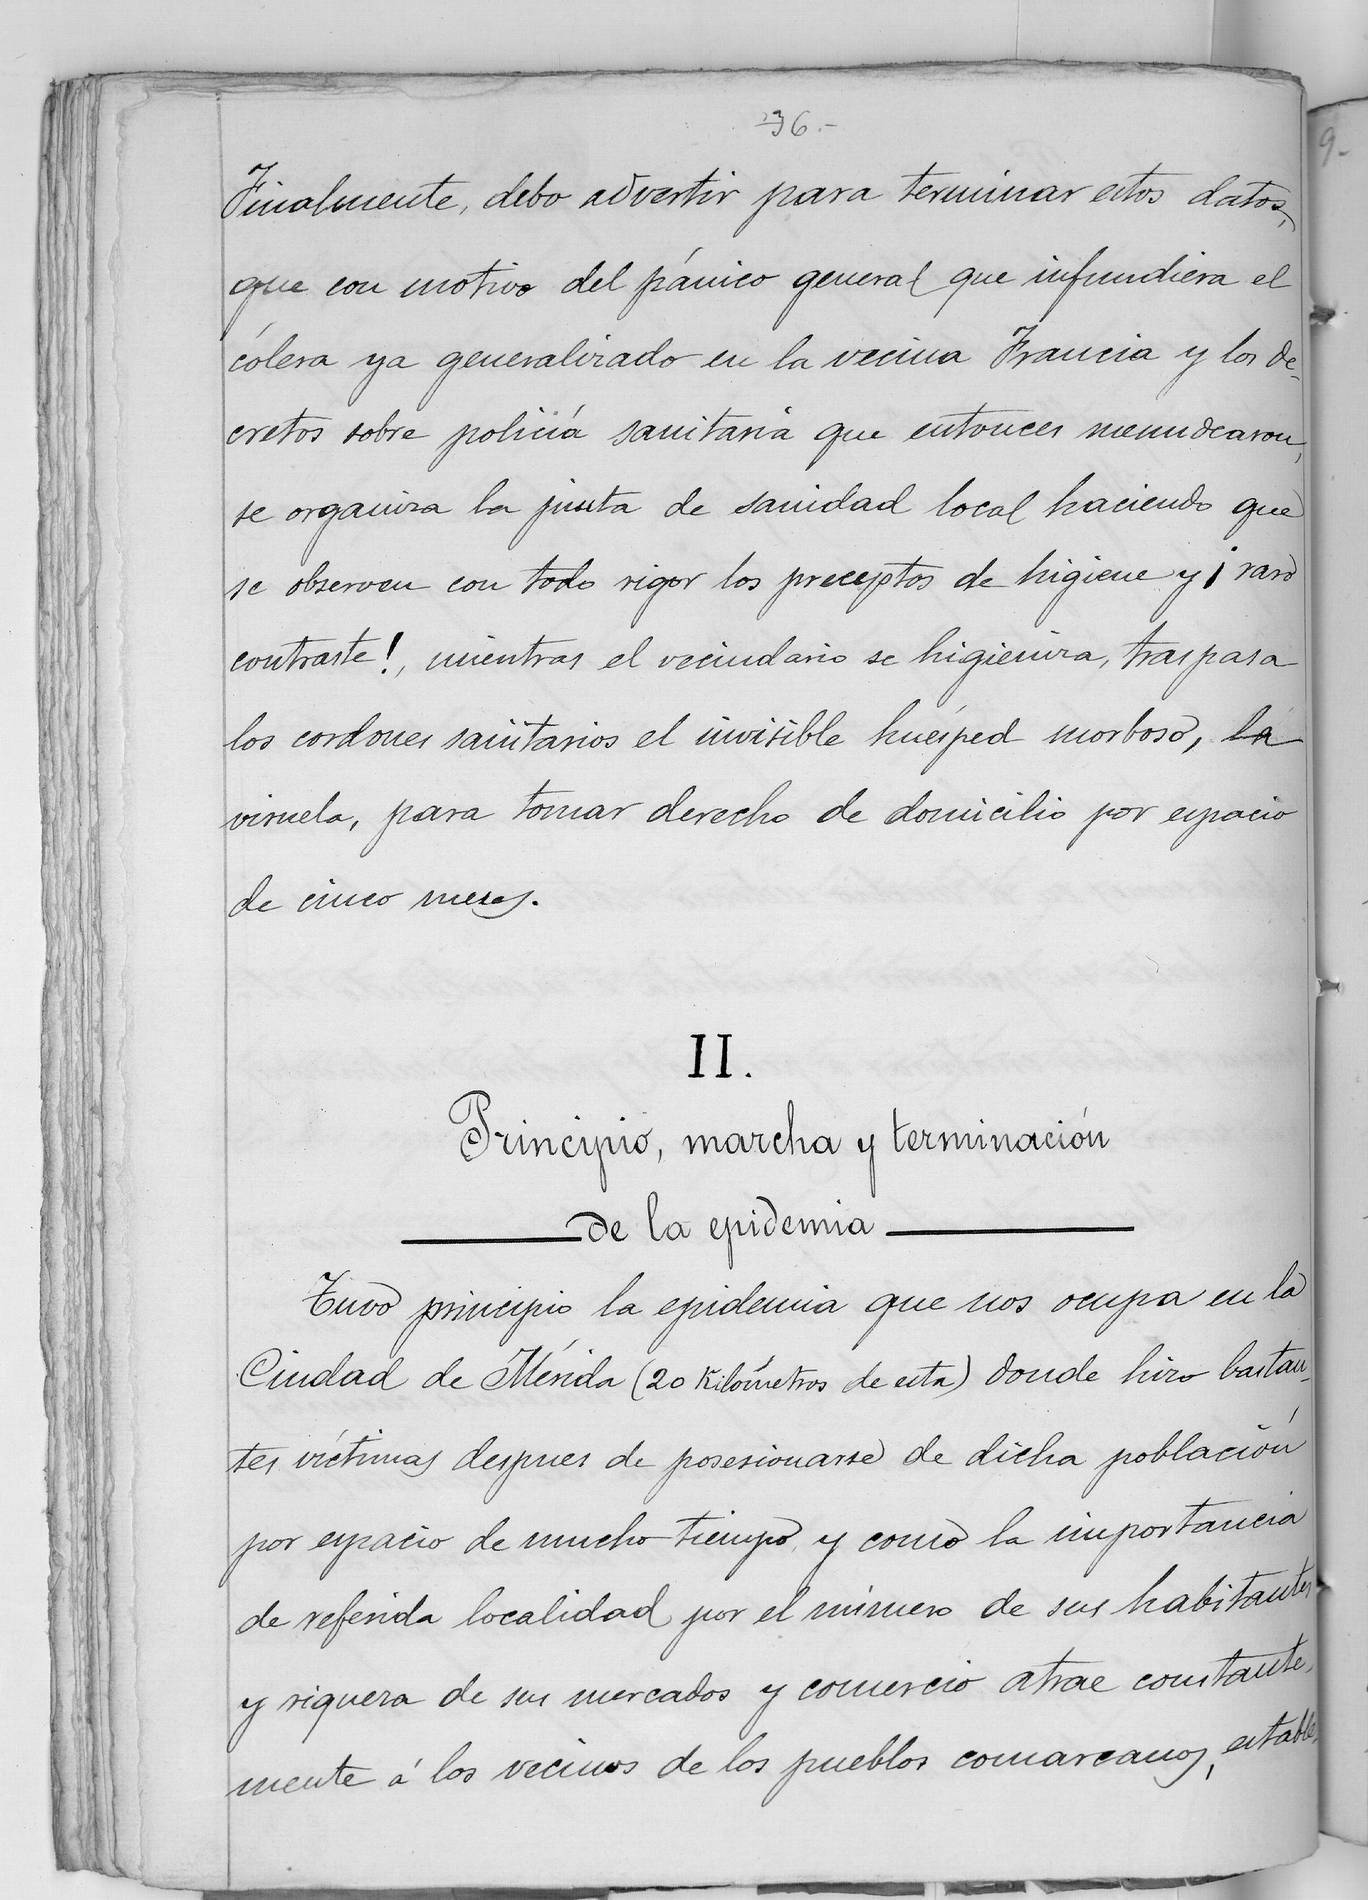 36.-
Finalmente, debo advertir para terminar estos datos,
que con motivo del pánico general que infundiera el
cólera ya generalizado en la vecina Francia y los de-
cretos sobre policiá sanitaria que entonces menudearon,
se organiza la junta de sanidad local haciendo que
se observen con todo rigor los preceptos de higiene y ¡raro
contraste!, mientras el vecindario se higieniza, traspasa
los cordones sanitarios el invisible huésped morboso, la
viruela, para tomar derecho de domicilio por espacio
de cinco meses.
II.
Principio, marcha y terminación
de la epidemia
Tuvo principio la epidemia que nos ocupa en la
Ciudad de Mérida (20 Kilómetros de esta) donde hizo bastan-
tes víctimas despues de posesionarse de dicha población
por espacio de mucho tiempo, y como la importancia
de referida localidad por el número de sus habitantes
y riqueza de sus mercados y comercio atrae constante-
mente á los vecinos de los pueblos comarcanos, estable-
9-